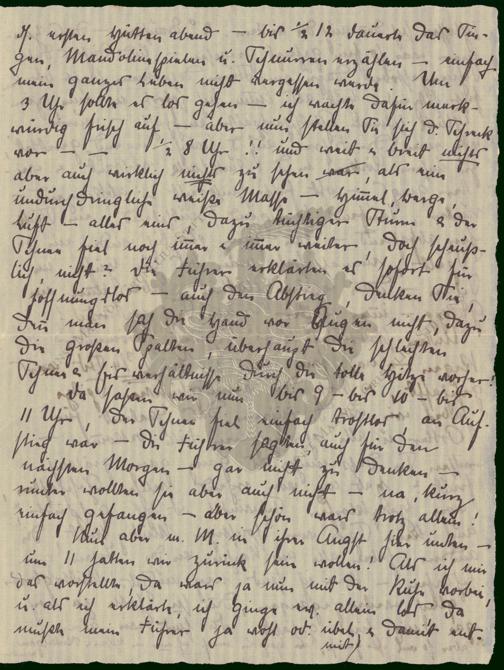 d. ersten Hüttenabend – bis ½ 12 dauerte das Sin-
gen, Mandolinespielen u. Schnurrenerzählen – einfach
mein ganzes Leben nicht vergessen werde. Um
3 Uhr sollte es los gehen – ich wachte dafür merk-
würdig frisch auf – aber nun stellen Sie sich d. Schreck
vor – – ½ 8 Uhr !! und weit u breit nichts
aber auch wirklich nichts zu sehen war, als eine
undurchdringliche weiße Masse – Himmel, Berge,
Luft – alles eins, dazu tüchtiger Sturm u der
Schnee fiel noch immer u immer weiter, doch scheuß-
lich, nicht? Die Führer erklärten es sofort für
hoffnungslos – auch den Abstieg, denken Sie,
denn man sah die Hand vor Augen nicht, dazu
die großen Spalten, überhaupt die schlechten
Schneeverhältnisse durch die tolle Hitze vorher.
Da saßen wir nun bis 9 – bis 10 – bis
11 Uhr, der Schnee fiel einfach trostlos, an Auf-
stieg war – die Führer sagten, auch für den
nächsten Morgen – gar nicht zu denken –
runter wollten sie aber auch nicht – na, kurz
einfach gefangen – aber schön wars trotz allem!
Nun aber m. M. in ihrer Angst hier unten –
um 11 hatten wir zurück sein wollen! Als ich mir
das vorstellte, da wars ja nun mit der Ruhe vorbei,
u. als ich erklärte, ich ginge ev. allein los da
mußte mein Führer ja wohl od. übel mit u damit ent-